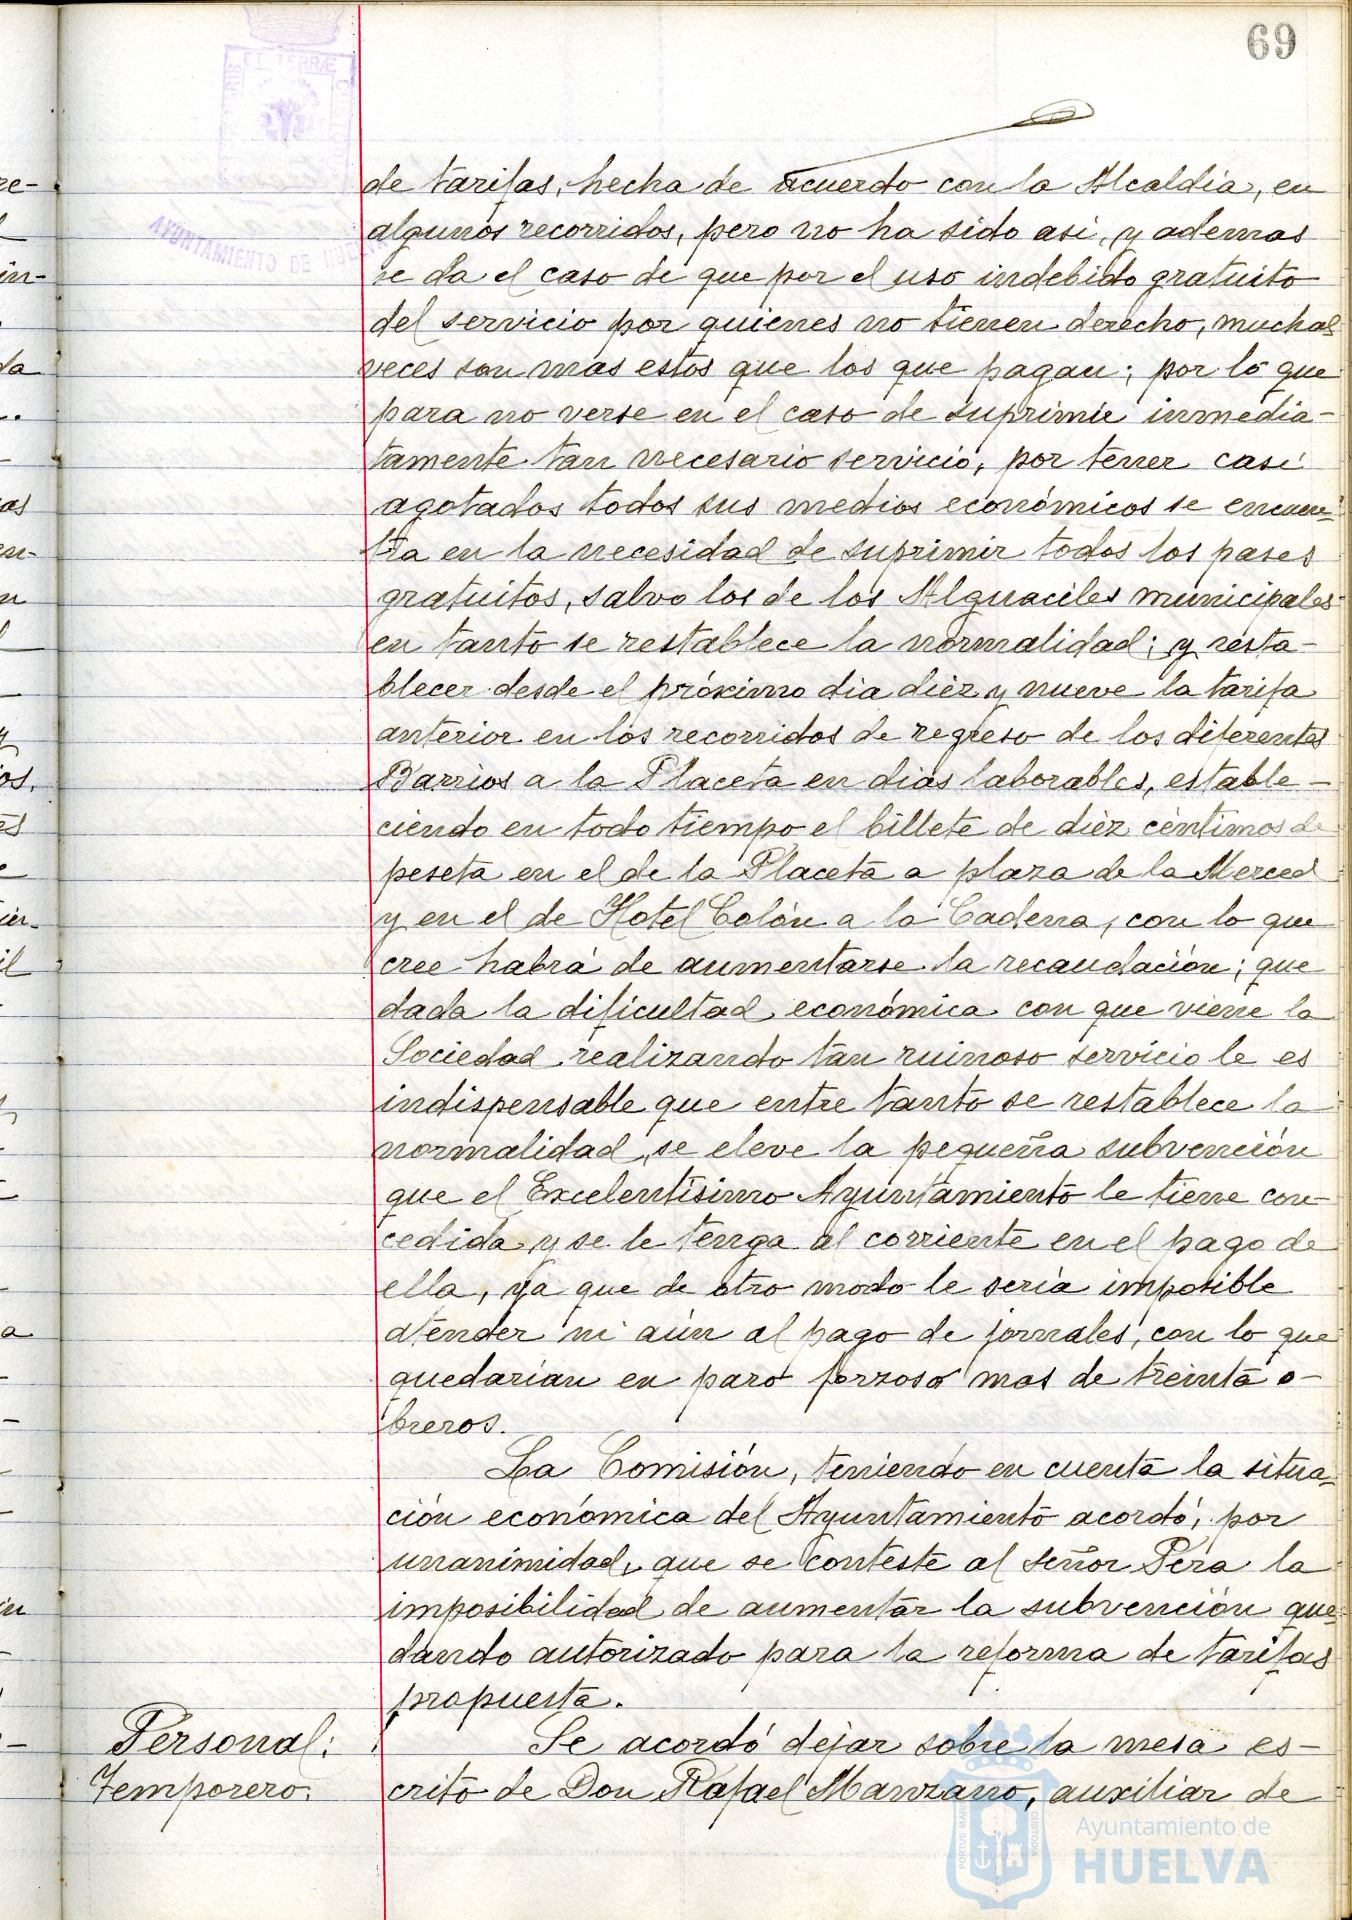 69
de tarifas, hecha de acuerdo con la Alcaldia, en
algunos recorridos, pero no ha sido asi, y ademas
se da el caso de que por el uso indebido gratuito
del servicio por quienes no tienen derecho, muchas
veces son mas estos que los que pagan; por lo que
para no verse en el caso de suprimir inmedia-
tamente tan necesario servicio, por tener casi
agotados todos sus medios económicos se encuen-
tra en la necesidad de suprimir todos los pases
gratuitos, salvo los de los Alguaciles municipales
en tanto se restablece la normalidad; y resta-
blecer desde el próximo dia diez y nueve la tarifa
anterior en los recorridos de regreso de los diferentes
Barrios a la Placeta en dias laborables, estable-
ciendo en todo tiempo el billete de diez céntimos de
peseta en el de la Placeta a plaza de la Merced
y en el de Hotel Colón a la Cadena, con lo que
cree habrá de aumentarse la recaudación; que
dada la dificultad económica con que viene la
Sociedad realizando tan ruinoso servicio le es
indispensable que entre tanto se restablece la
normalidad, se eleve la pequeña subvención
que el Excelentísimo Ayuntamiento le tiene con-
cedida y se le tenga al corriente en el pago de
ella, ya que de otro modo le sería imposible
atender ni aún al pago de jornales, con lo que
quedarían en paro forzoso mas de treinta o-
breros.
La Comisión, teniendo en cuenta la situa-
ción económica del Ayuntamiento acordó, por
unanimidad, que se conteste al señor Pera la
imposibilidad de aumentar la subvención que-
dando autorizado para la reforma de tarifas
propuesta.
Personal:
Temporero.
Se acordó dejar sobre la mesa es-
crito de Don Rafael Manzano, auxiliar de
AYUNTAMIENTO DE HUELVA
Ayuntamiento de
HUELVA